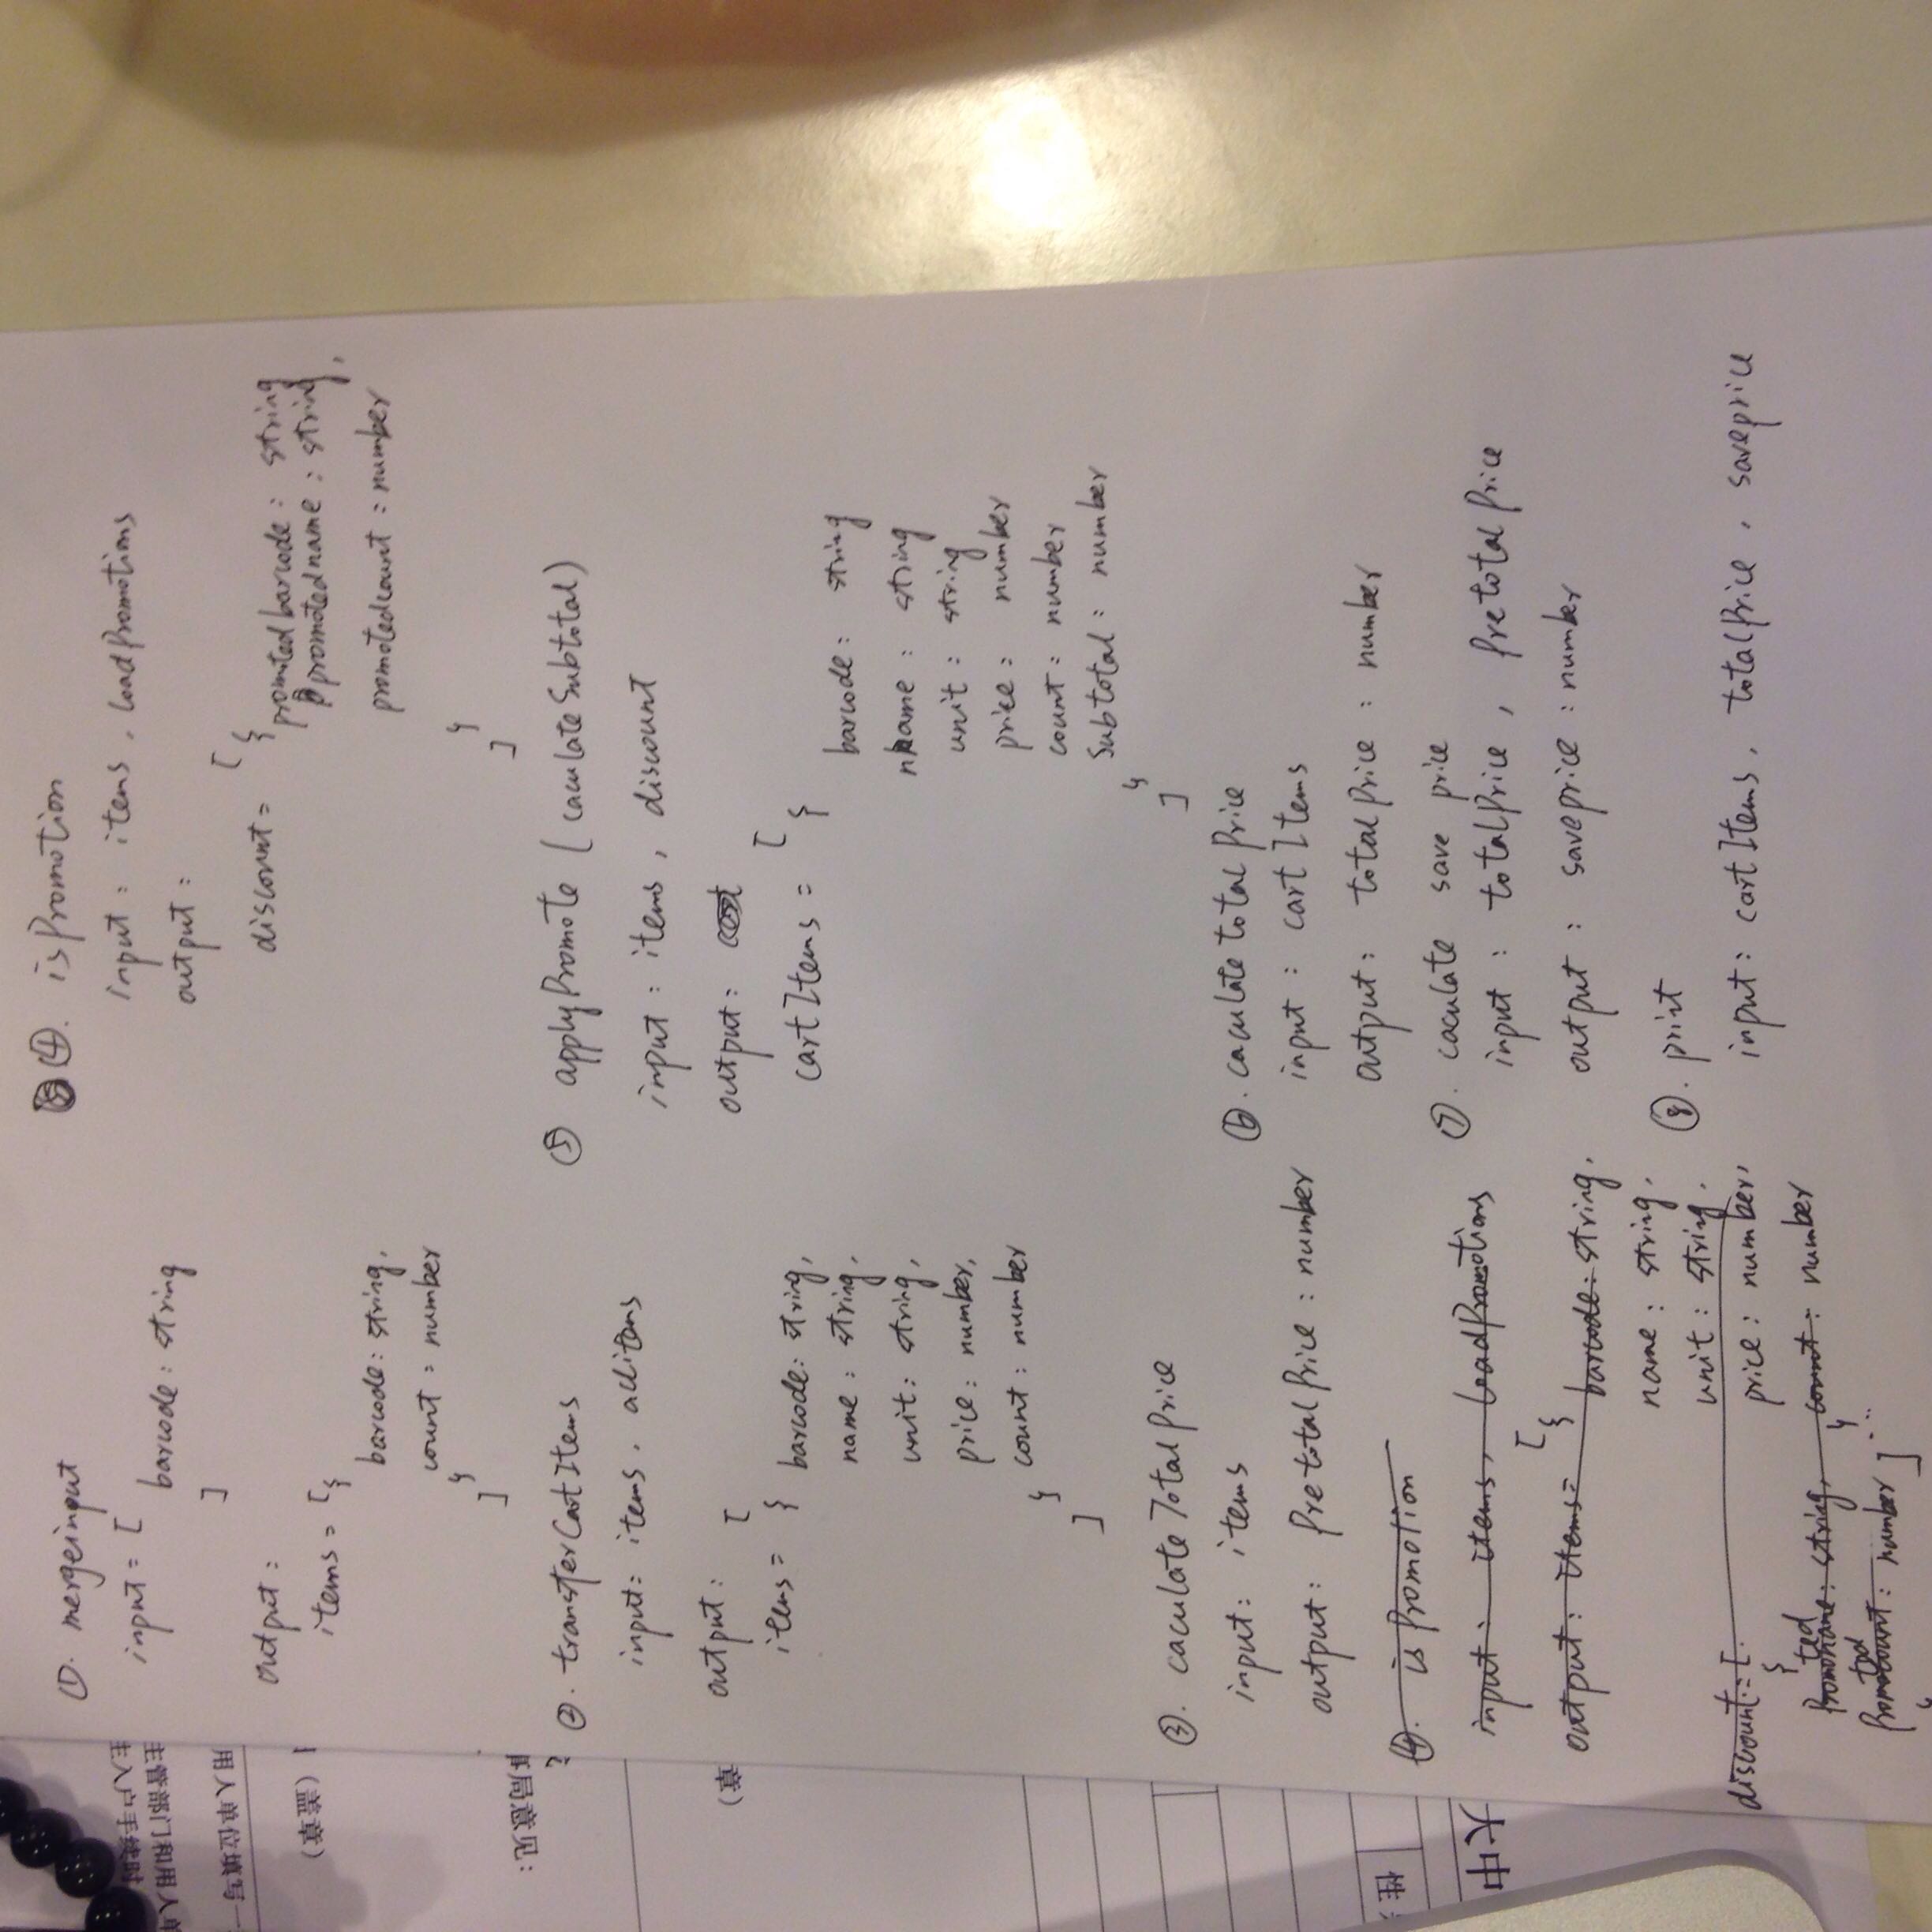 ①. mergeinput
input = [
barcode: string
]
output:
items = [{
barcode: string,
count: number
}
]
②. transferCartItems
input: items,
output:
[
items = {
barcode: string,
name: string,
unit: string,
price: number,
count: number
}
]
③. caculateTotalPrice
input: items
output: PretotalPrice: number
④. isPromotion
input: items, loadPromotions
output: items= [{
barcode: string,
name: string,
unit: string,
price: number,
count: number
}
discount = [
{
Promotedname: string,
Promotedcount: number ]
④. isPromotion
input: items, loadPromotions
output:
discount = [{
promotedbarcode: string
promotedname: string,
promotedcount: number
}
]
⑤ applyPromote (caculateSubtotal)
input: items, discount
output:
cartItems = [{
barcode: string
name: string
unit: string
price: number
count: number
Subtotal: number
}
]
⑥. caculatetotalPrice
input: cartItems
output: totalPrice: number
⑦. caculate save price
input: totalPrice, PretotalPrice
output: saveprice: number
⑧. print
input: cartItems, totalPrice, saveprice
主管部门和用人单
用人单位填写一
（盖章）
局意见：
章）
性
大中